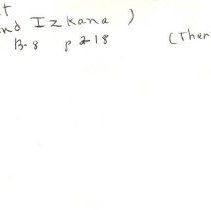 t
nd Izkana )
B-8 p 218
(Ther